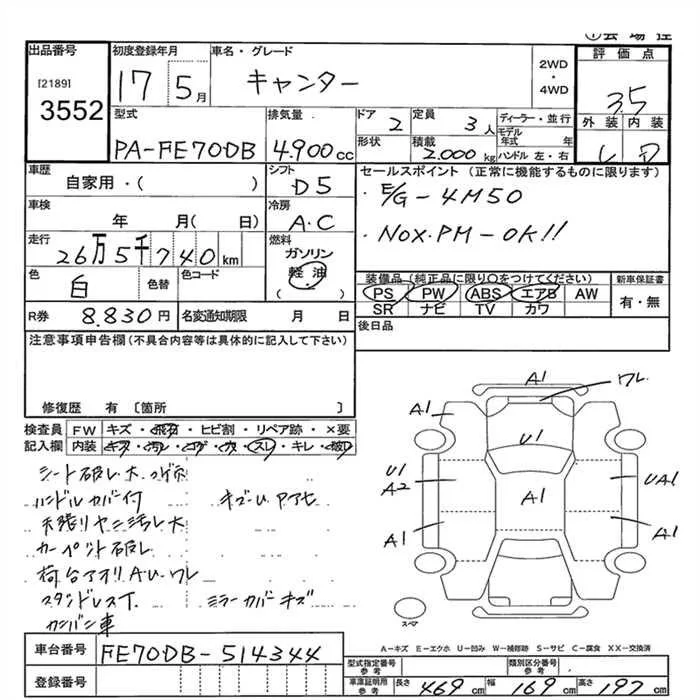 出品番号
[2189]
3552
初度登録年月
17 5月
車名・グレード
キャンター
2WD
・
4WD
評価点
3.5
型式
PA-FE70DB
排気量
4.900cc
ドア 2
形状
定員 3人
積載 2.000kg
ディーラー・並行
モデル年式 年
ハンドル 左・右
外装 内装
D
車歴
自家用・( )
シフト
D5
セールスポイント (正常に機能するものに限ります)
・E/G-4M50
・NOX.PM-OK!!
車検
年 月( 日)
冷房
A.C
走行
26万5千740km
燃料
ガソリン
軽油
( )
色
白
色替
色コード
装備品(純正品に限り○をつけてください)
PS PW ABS エアB AW
SR ナビ TV カワ
新車保証書
有・無
R券 8.830円
名変通知期限 月 日
後日品
注意事項申告欄(不具合内容等は具体的に記入して下さい)
修復歴 有 〔箇所 〕
検査員 FW キズ・飛石・ヒビ割・リペア跡・×要
記入欄 内装 キズ・汚レ・コゲ・穴・スレ・キレ・破レ
シート破レ大.コゲ穴
ハンドルカバー付
天張リヤニ汚レ大
カーペット破レ
荷台アオリA.U.ワレ
スタンドレスT.
ミラーカバーキズ
カンバン車
A1
ワレ
A1
U1
U1
A2
A1
UA1
A1
A1
スペア
A-キズ E-エクボ U-凹み W-補修跡 S-サビ C-腐食 XX-交換済
車台番号 FE70DB-514344
登録番号
型式指定番号
参考
類別区分番号
参考
車庫証明用
参考
長さ 469cm 幅 169cm 高さ 197cm